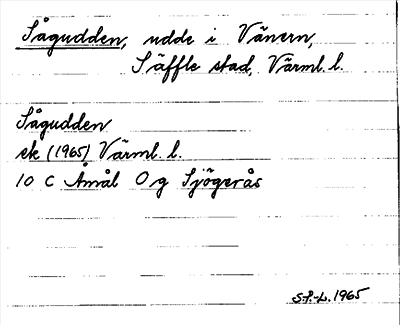 Sågudden, udde i Vänern,
Säffle stad, Värml. l.
Sågudden
ek (1965) Värml. l.
10 C Åmål O g Sjögerås
S.P.-L. 1965